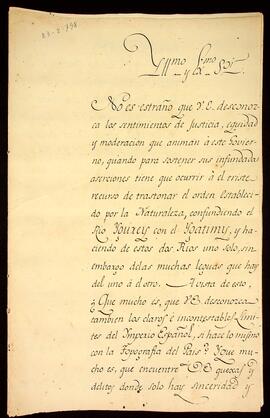 Yllmo y Exmo Sor
No es estraño que V.E. desconoz
ca los sentimientos de Justicia, equidad
y moderacion que animan á este Govier
no, quando para sostener sus infundadas
aserciones tiene que ocurrir á el triste
recurso de trastonar el orden Estableci
do por la Naturaleza, confundiendo el
Rio Ygurey con el Ygatimy, y ha
ciendo de estos dos Rios uno solo, sin
embargo delas muchas leguas que hay
del uno á el otro. A vista de esto,
¿Que mucho es, que V.E. desconozca
tambien los claros é incontestables Limi
tes del Imperio Español, si hace lo mismo
con la Topografia del Pais? Y Que mu
cho es, que encuentre V.E. quexas y
delitos donde solo hay sinceridad y